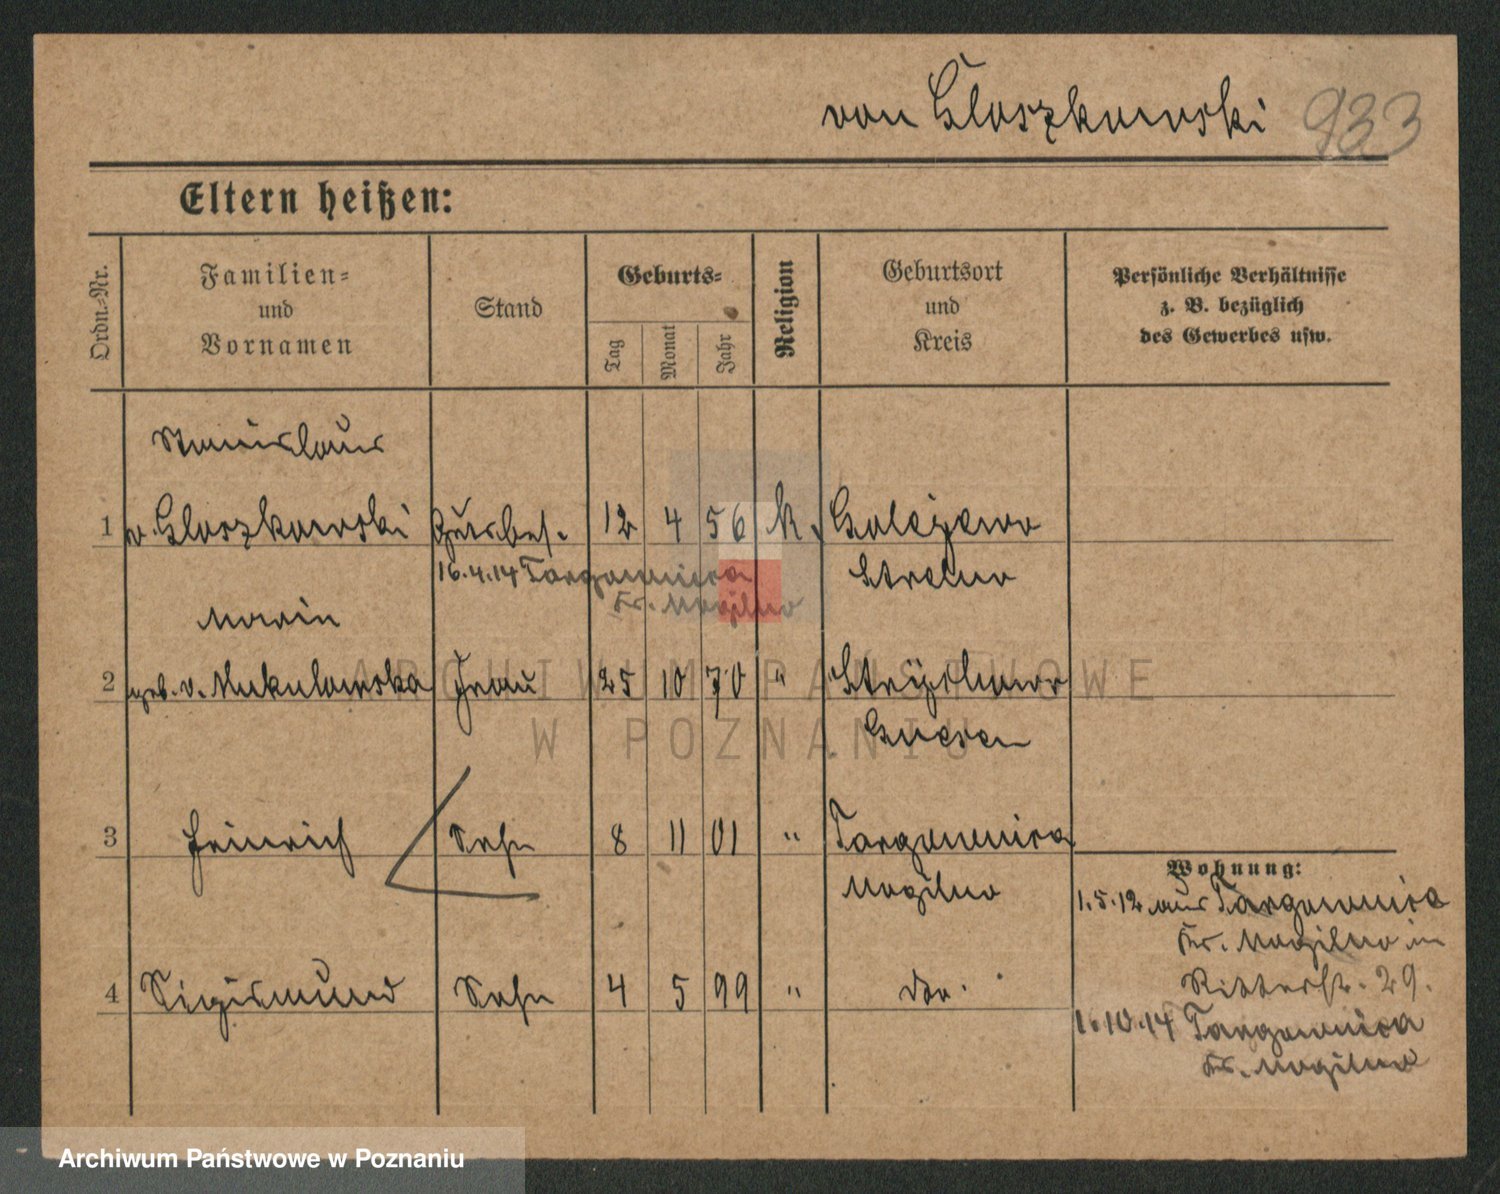 von Gloszkowski 933
Eltern heißen:
Ordn.-Nr.
Familien-
und
Vornamen
Stand
Geburts-
Tag
Monat
Jahr
Religion
Geburtsort
und
Kreis
Persönliche Verhältnisse
z. B. bezüglich
des Gewerbes usw.
Stanislaus
1 v. Gloszkowski Gutsbes. 12 4 56 k. Golejewo
16.4.14 Targownica Strelno
Kr. Mogilno
Maria
2 geb. v. Mukulowska Frau 25 10 70 " Stryschowo
Gnesen
3 Heinrich Sohn 8 11 01 " Targownica
Mogilno
Wohnung:
1.5.12 aus Targownica
Kr. Mogilno in
Ritterstr. 29.
4 Sigismund Sohn 4 5 99 " do.
1.10.14 Targownica
Kr. Mogilno
ARCHIWUM PAŃSTWOWE
W POZNANIU
Archiwum Państwowe w Poznaniu